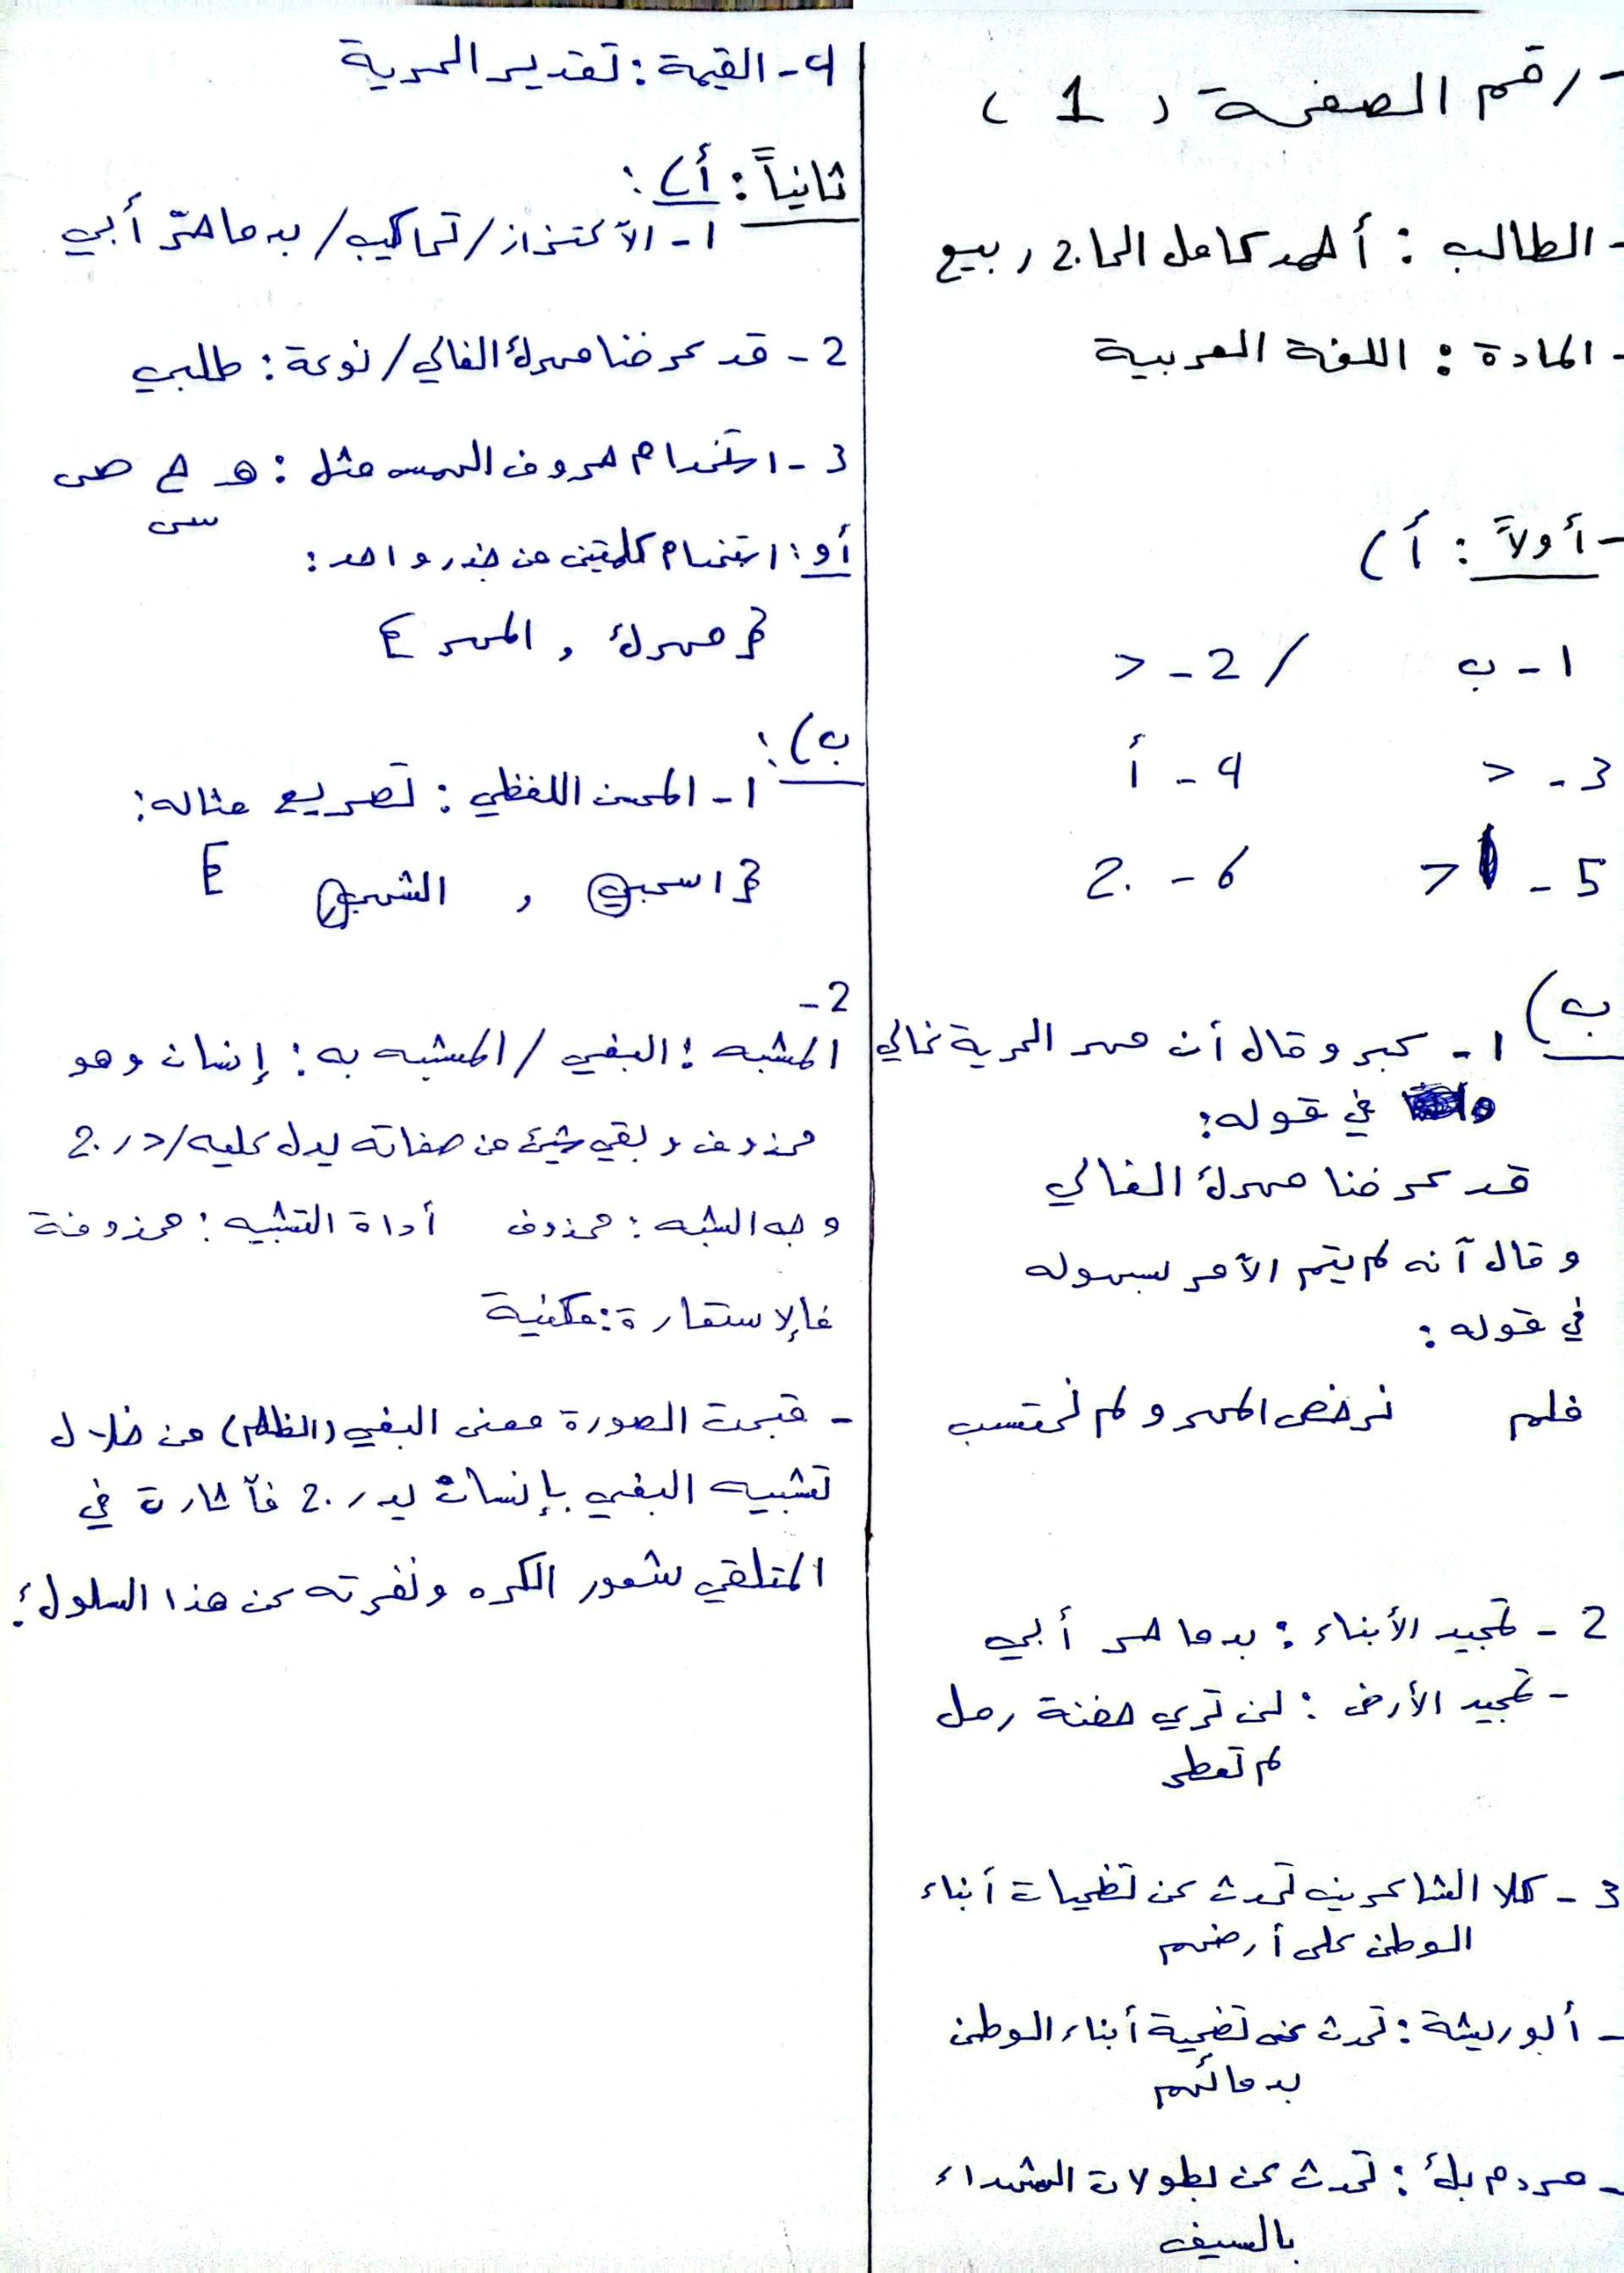 - رقم الصفحة ( 1 )
- الطالب : أحمد كامل الحاج ربيع
- المادة : اللغة العربية
- أولاً : أ )
1 - ب / 2 - د
3 - د 4 - أ
5 - د 6 - ج
ب )
1 - عبر وقال أن مهر الحرية غالي
في قوله :
قد عرفنا مهرك الغالي
وقال أنه لم يتم الأمر بسهوله
في قوله :
فلم نرخص المهر ولم نحتسب
2 - تمجيد الأبناء : بدما حر أبي
- تمجيد الأرض : لن تري حفنة رمل
لم تعطر
3 - كلا الشاعرين تحدث عن تضحيات أبناء
الوطن على أرضهم
- أبو ريشة : تحدث عن تضحية أبناء الوطن
بدمائهم
- مردم بك : تحدث عن بطولات الشهداء
بالسيف
4 - القيمة : تقدير الحرية
ثانياً : أ ) :
1 - الاعتزاز / تراكيب / بدما حرّ أبي
2 - قد عرفنا مهرك الغالي / نوعة : طلبي
3 - استخدام حروف الهمس مثل : هـ ح ص
س
أو : استخدام كلمتين من جذر واحد :
{ مهرك , المهر }
ب ) :
1 - المحسن اللفظي : تصريع مثاله :
{ اسحبي , الشهب }
2 -
المشبه : البغي / المشبه به : إنسان وهو
محذوف وبقي شيئ من صفاته يدل عليه / درج
وجه الشبه : محذوف أداة التشبيه : محذوفة
فالإستعارة : مكنية
- قبحت الصورة معنى البغي (الظلم) من خلال
تشبيه البغي بإنسان يدرج فأثارة في
المتلقي شعور الكره ونفرته عن هذا السلوك .